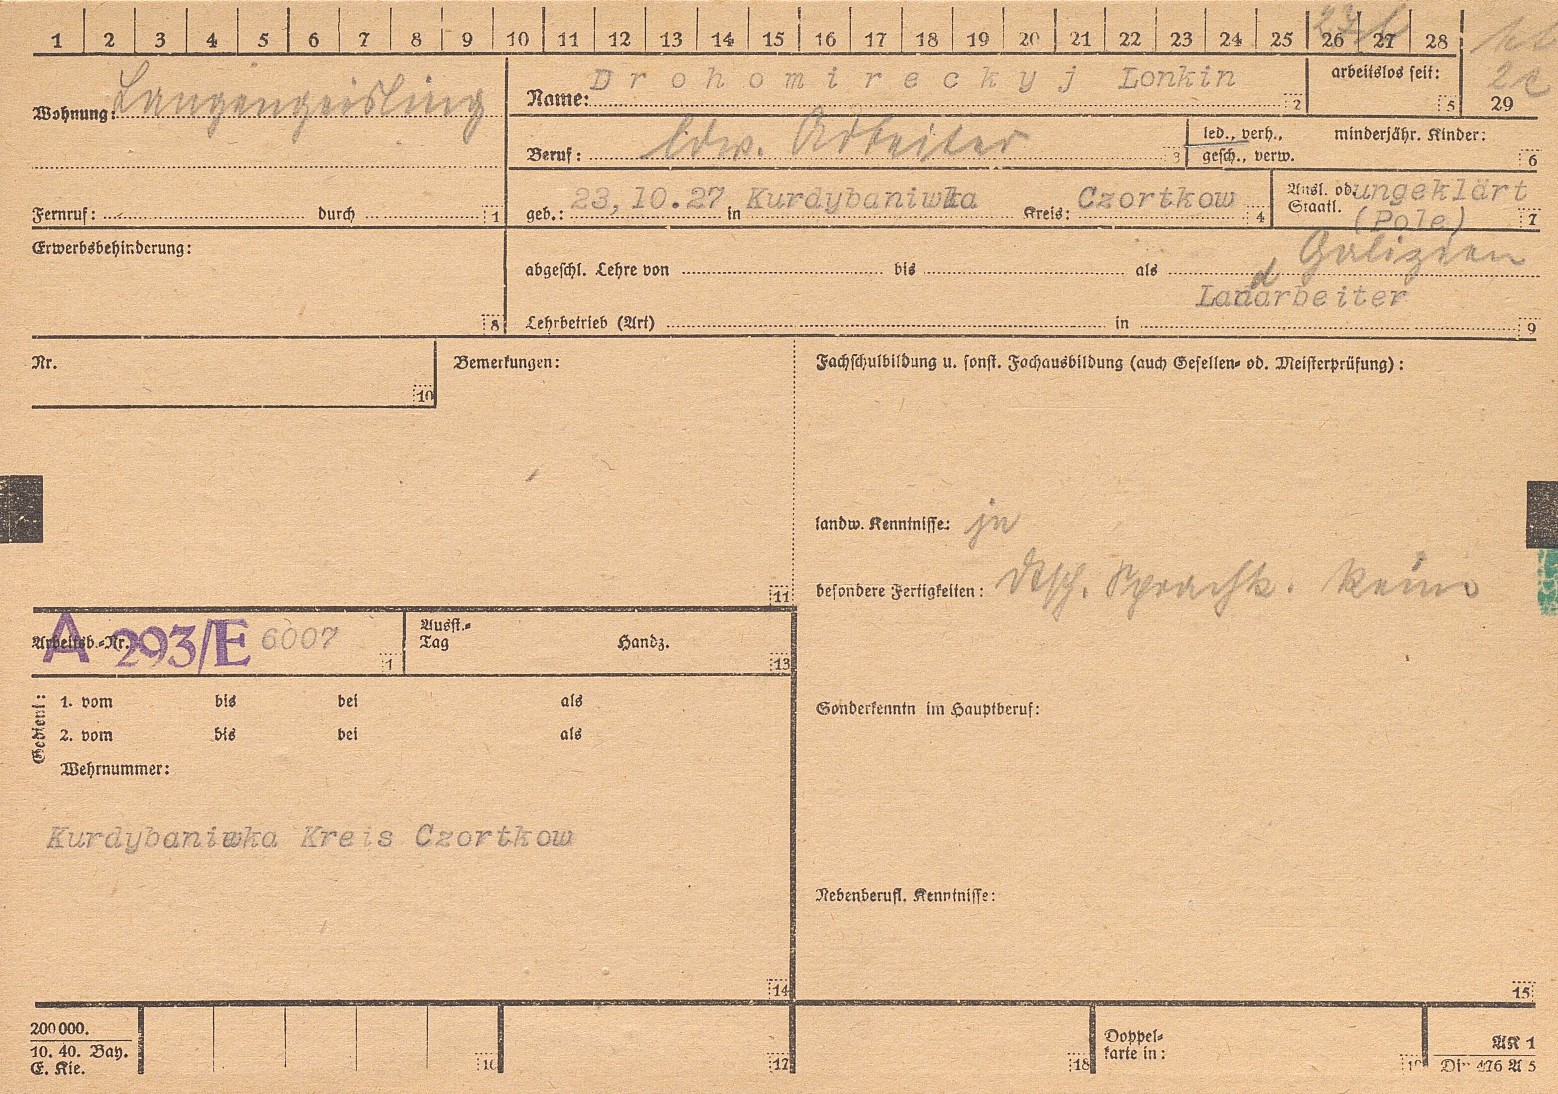 1 2 3 4 5 6 7 8 9 10 11 12 13 14 15 16 17 18 19 20 21 22 23 24 25 26 27 28 29
Wohnung: Langengeisling
Name: Drohomireckyj Lonkin 2
arbeitslos seit: 5
Beruf: ldw. Arbeiter 3
led., verh., gesch., verw.
minderjähr. Kinder: 6
Fernruf: durch 1
geb.: 23,10.27 in Kurdybaniwka Kreis: Czortkow 4
Ausl. od. Staatl. ungeklärt (Pole) 7
Erwerbsbehinderung: 8
abgeschl. Lehre von bis als Galizien
Landarbeiter
Lehrbetrieb (Art) in 9
Nr. 10
Bemerkungen: 11
Fachschulbildung u. sonst. Fachausbildung (auch Gesellen- od. Meisterprüfung):
landw. Kenntnisse: ja
besondere Fertigkeiten: dtsch. Sprachk. keine
Arbeitsb.-Nr. A 293/E 6007 1
Ausst.-Tag Handz. 13
Sonderkenntn im Hauptberuf:
Gedient:
1. vom bis bei als
2. vom bis bei als
Wehrnummer:
Kurdybaniwka Kreis Czortkow
14
Nebenberufl. Kenntnisse:
15
200 000.
10. 40. Bay.
E. Kie.
16 17 18
Doppelkarte in: 19
AK 1
Din 476 A 5